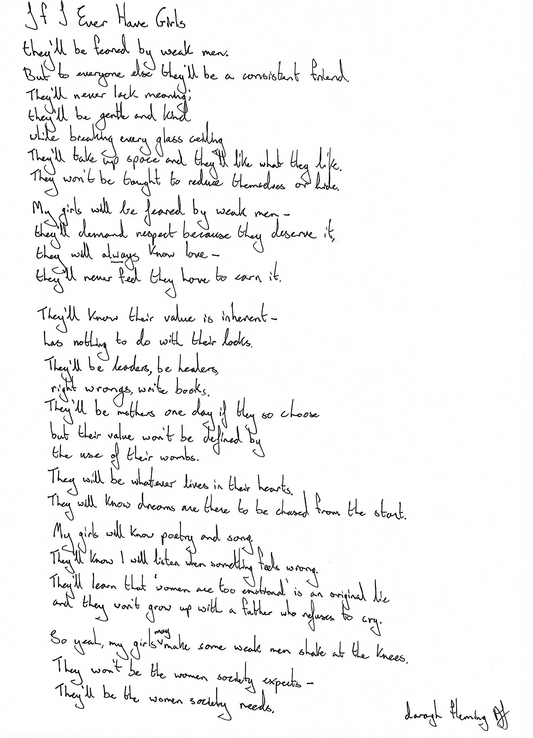 If I Ever Have Girls
they'll be feared by weak men.
But to everyone else they'll be a consistent friend.
They'll never lack meaning;
they'll be gentle and kind
while breaking every glass ceiling
They'll take up space and they'll like what they like.
They won't be taught to reduce themselves or hide.
My girls will be feared by weak men –
they'll demand respect because they deserve it,
they will always know love –
they'll never feel they have to earn it.
They'll know their value is inherent –
has nothing to do with their looks.
They'll be leaders, be healers,
right wrongs, write books.
They'll be mothers one day if they so choose
but their value won't be defined by
the use of their wombs.
They will be whatever lives in their hearts.
They will know dreams are there to be chased from the start.
My girls will know poetry and song.
They'll know I will listen when something feels wrong.
They'll learn that 'women are too emotional' is an original lie
and they won't grow up with a father who refuses to cry.
So yeah, my girls may make some weak men shake at the knees.
They won't be the women society expects –
They'll be the women society needs.
daragh fleming DF